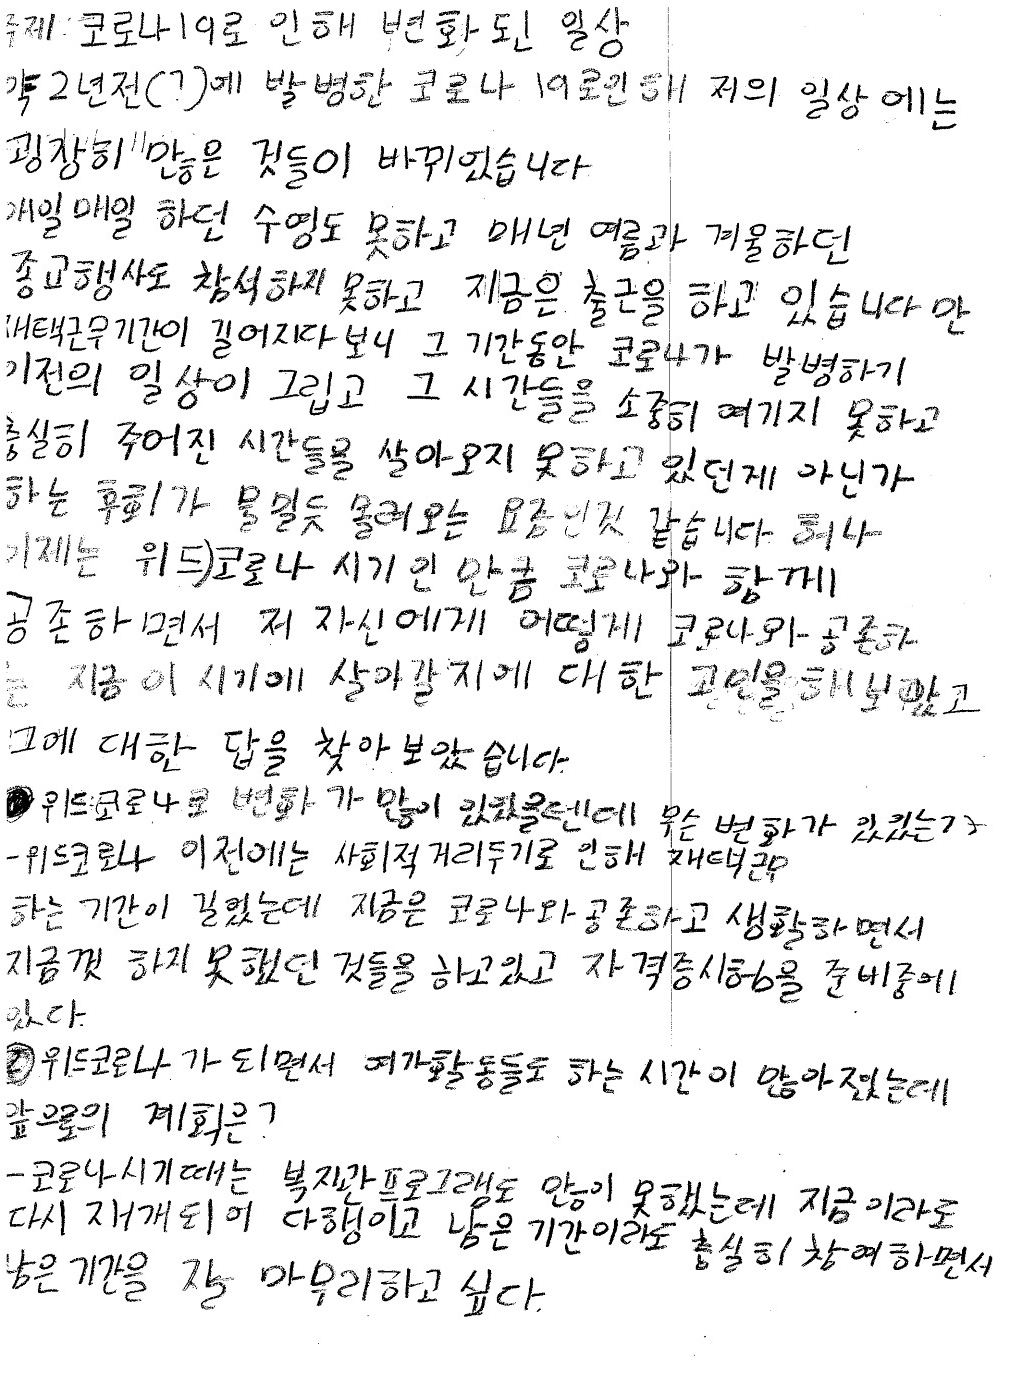 주제: 코로나19로 인해 변화된 일상
약 2년전(?)에 발병한 코로나 19로인해 저의 일상에는
굉장히 많은 것들이 바뀌었습니다
매일매일 하던 수영도 못하고 매년 여름과 겨울하던
종교행사도 참석하지 못하고 지금은 출근을 하고 있습니다만
재택근무기간이 길어지다보니 그 기간동안 코로나가 발병하기
이전의 일상이 그립고 그 시간들을 소중히 여기지 못하고
충실히 주어진 시간들을 살아오지 못하고 있던게 아닌가
하는 후회가 물밀듯 몰려오는 요즘인것 같습니다. 허나
이제는 위드)코로나 시기인 만큼 코로나와 함께
공존하면서 저 자신에게 어떻게 코로나와 공존하
는 지금 이 시기에 살아갈지에 대한 고민을 해보았고
그에 대한 답을 찾아보았습니다.
① 위드코로나로 변화가 많이 있었을텐데 무슨 변화가 있었는가
-위드코로나 이전에는 사회적거리두기로 인해 재택근무
하는 기간이 길었는데 지금은 코로나와 공존하고 생활하면서
지금껏 하지 못했던 것들을 하고있고 자격증시험을 준비중에
있다.
② 위드코로나가 되면서 여가활동들도 하는 시간이 많아졌는데
앞으로의 계획은?
-코로나시기때는 복지관프로그램도 많이 못했는데 지금이라도
다시 재개되어 다행이고 남은 기간이라도 충실히 참여하면서
남은 기간을 잘 마무리하고 싶다.